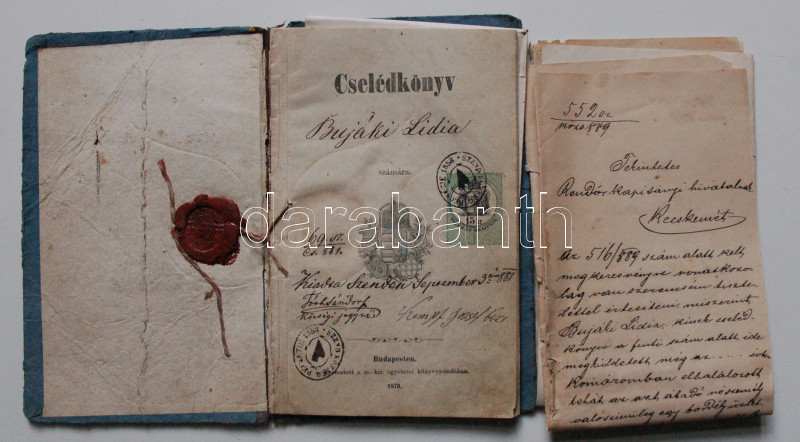 Cselédkönyv
Bujáki Lidia
számára.
15
Kiadta Szendén September
községi jegyző
Budapesten.
Nyomatott a m. kir. egyetemi könyvnyomdában.
1876.
darabanth
552
889
Tekintetes
Rendőrkapitányi hivatalnak
Kecskemét
Az 516/889 szám alatt kelt
megkeresvényre vonatkozo-
lag van szerencsém tiszte-
lettel értesíteni, miszerint
Bujáki Lidia, kinek cseléd
könyve a fenti szám alatt ide
megküldetett még az ....
Komáromban elhalálozott
tehát az azt átadó nőszemély
valószinüleg egy